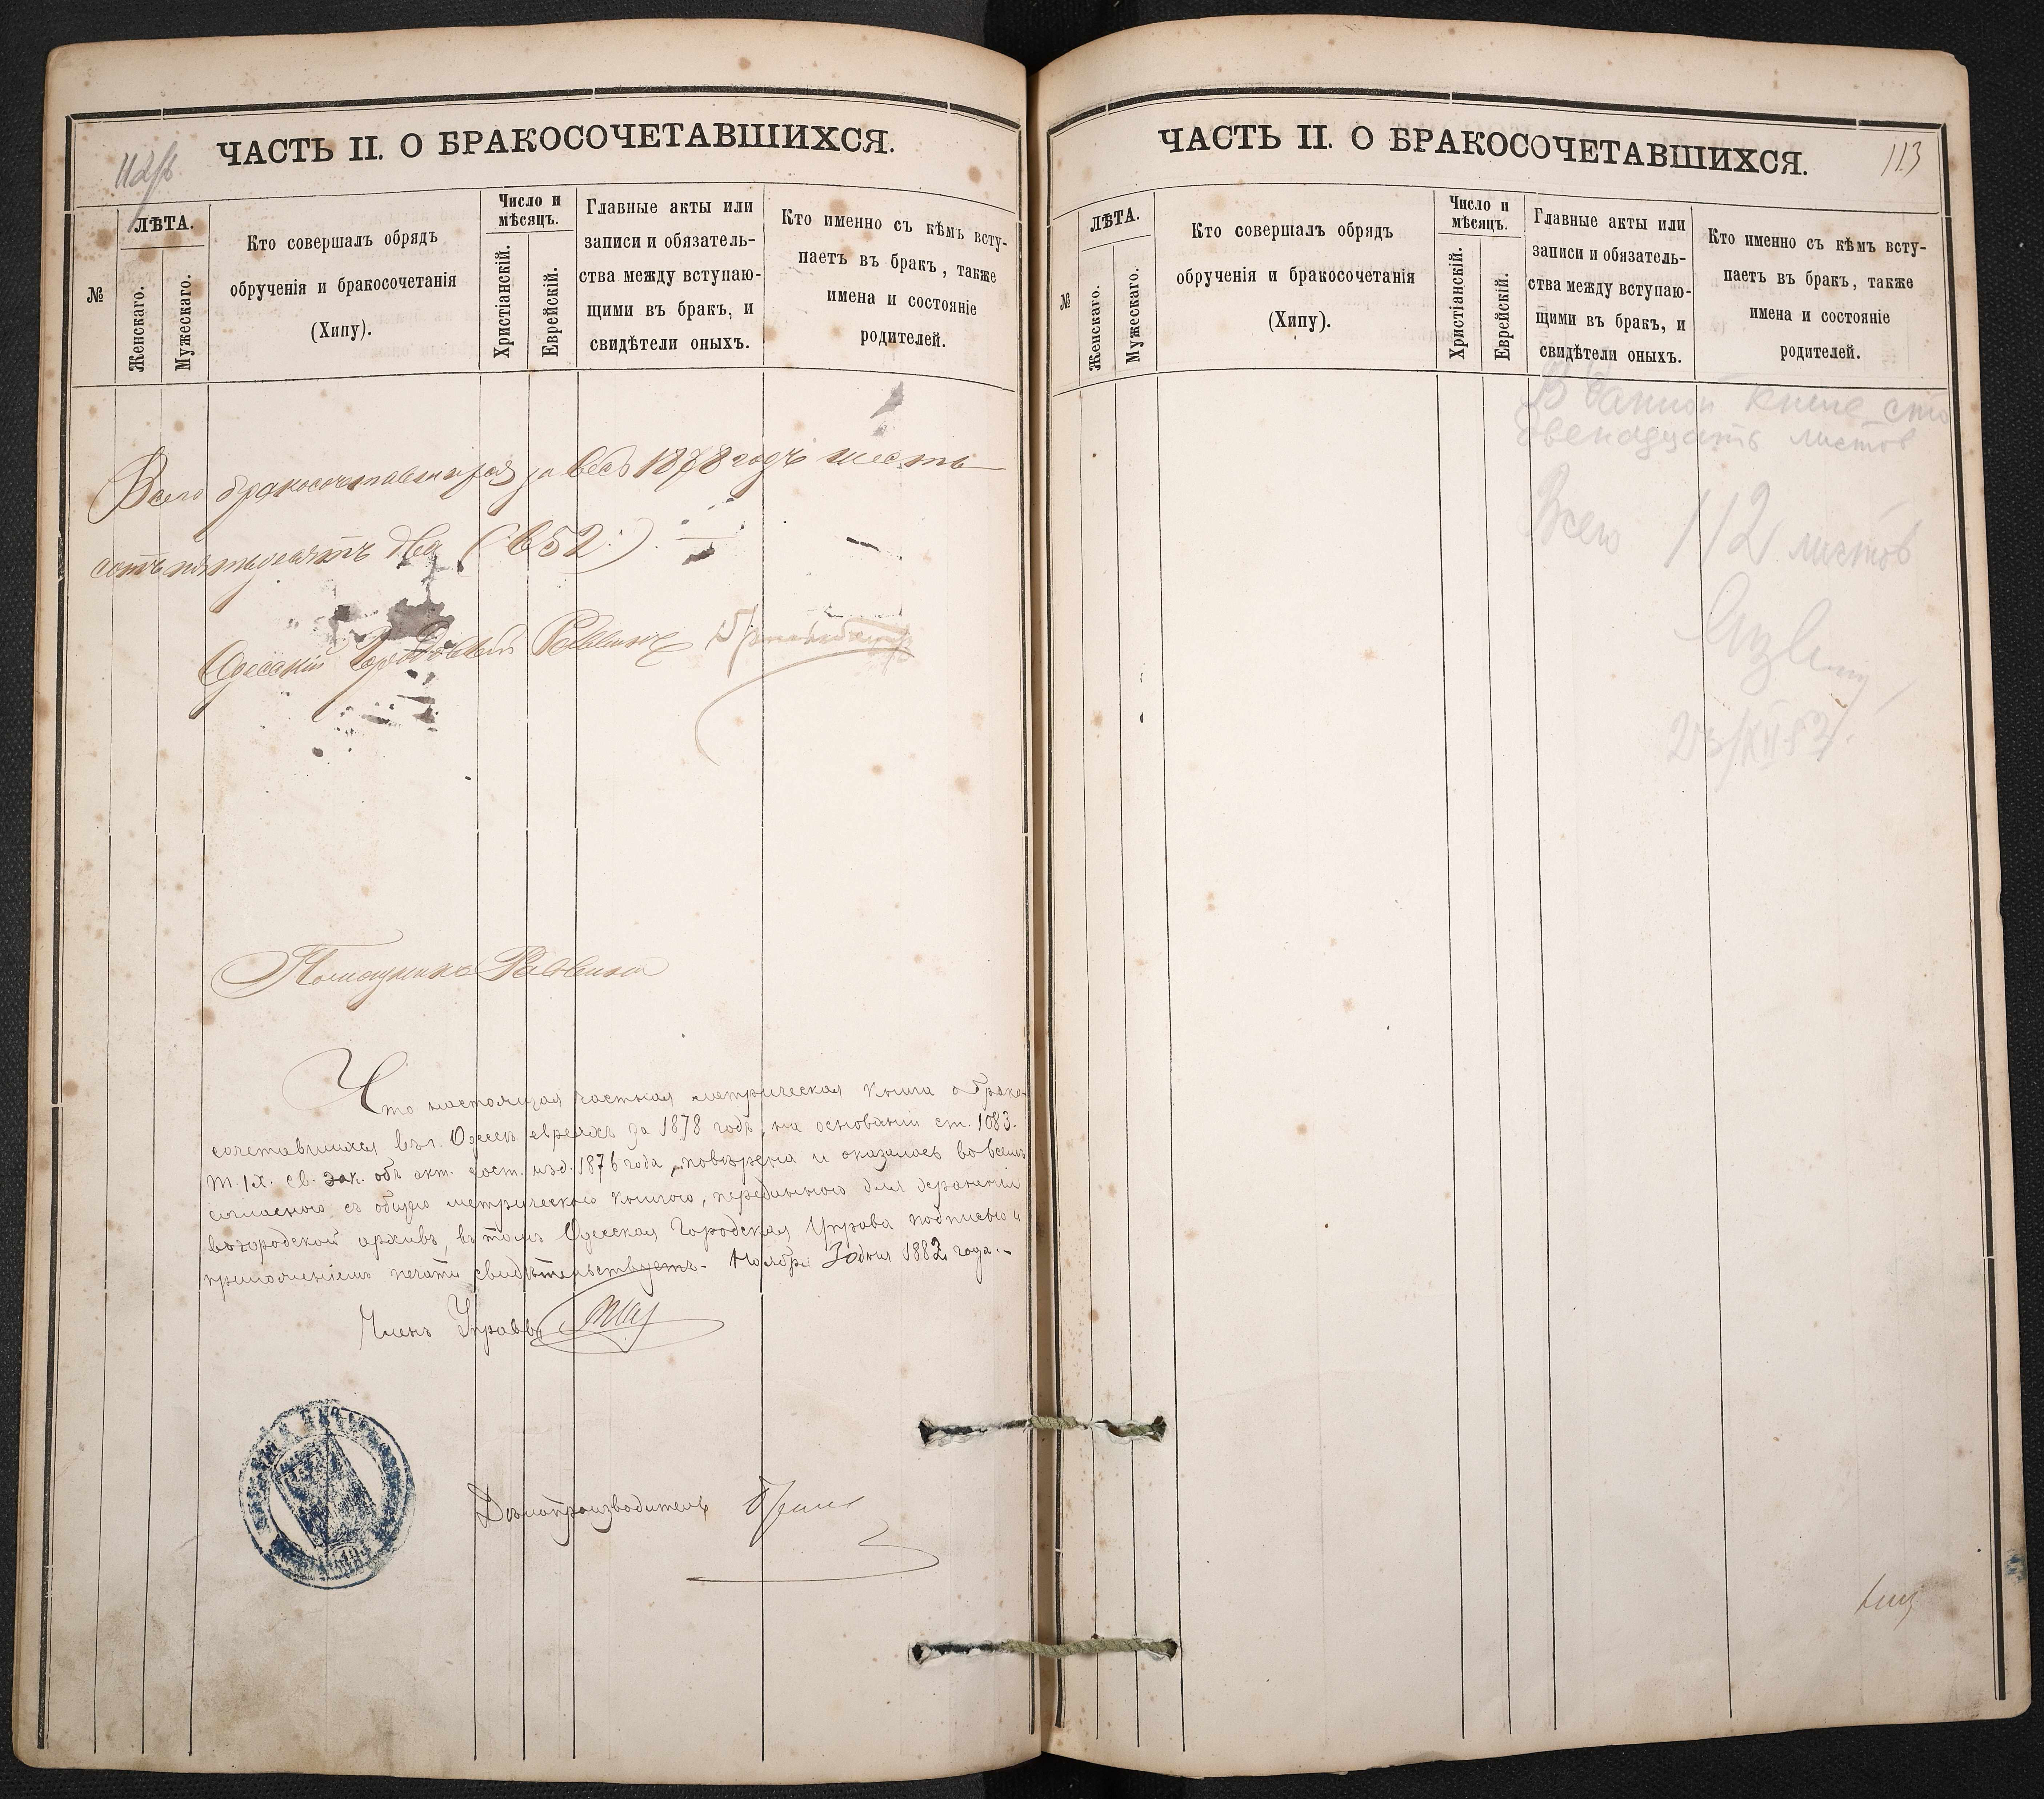 112об
ЧАСТЬ II. О БРАКОСОЧЕТАВШИХСЯ.
№
ЛѢТА.
Женскаго.
Мужескаго.
Кто совершалъ обрядъ
обрученія и бракосочетанія
(Хипу).
Число и
мѣсяцъ.
Христіанскій.
Еврейскій.
Главные акты или
записи и обязатель-
ства между вступаю-
щими въ бракъ, и
свидѣтели оныхъ.
Кто именно съ кѣмъ всту-
паетъ въ бракъ, также
имена и состояніе
родителей.
Всего бракосочетавшихся за весь 1878 годъ шесть
сотъ пятьдесятъ два (652)
Одесскій Городовой Раввинъ
Помощникъ Раввина
Что настоящая частная метрическая книга о брако-
сочетавшихся въ г. Одессѣ евреяхъ за 1878 годъ, на основаніи ст. 1083.
т. IX. св. зак. объ акт. сост. изд. 1876 года, повѣрена и оказалась во всемъ
согласною съ общею метрическою книгою, переданною для храненія
въ городской архивъ, въ томъ Одесская Городская Управа подписью и
приложеніемъ печати свидѣтельствуетъ. Ноября 30 дня 1882 года.
Членъ Управы
Дѣлопроизводитель
ЧАСТЬ II. О БРАКОСОЧЕТАВШИХСЯ.
113
№
ЛѢТА.
Женскаго.
Мужескаго.
Кто совершалъ обрядъ
обрученія и бракосочетанія
(Хипу).
Число и
мѣсяцъ.
Христіанскій.
Еврейскій.
Главные акты или
записи и обязатель-
ства между вступаю-
щими въ бракъ, и
свидѣтели оныхъ.
Кто именно съ кѣмъ всту-
паетъ въ бракъ, также
имена и состояніе
родителей.
В данной книге сто
двенадцать листов
Всего 112 листов
23/XII 53